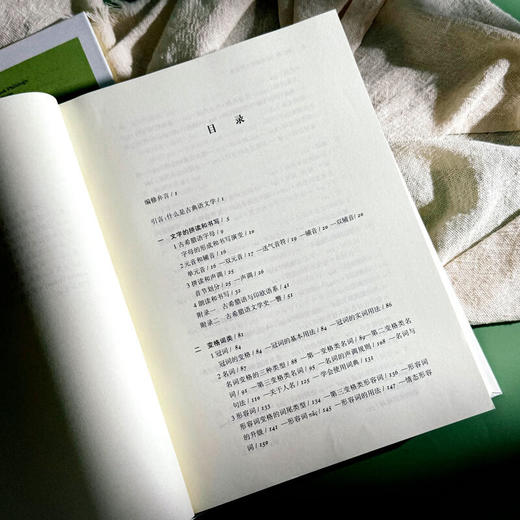 目 录
编修弁言 / 1
引言：什么是古典语文学 / 1
一 文字的拼读和书写 / 5
1 古希腊语字母 / 9
字母的形成和书写演变 / 10
2 元音和辅音 / 16
单元音 / 16 —双元音 / 17 —送气音符 / 19 —辅音 / 20 —以辅音 / 20
3 拼读和声调 / 25
音节划分 / 25 —声调 / 26
4 朗读和书写 / 32
附录一 古希腊语与印欧语系 / 41
附录二 古希腊语文学史一瞥 / 51
二 变格词类 / 81
1 冠词 / 84
冠词的变格 / 84 —冠词的基本用法 / 84 —冠词的实词用法 / 84
2 名词 / 87
名词变格的三种类型 / 88 —第一变格类名词 / 89 —第二变格类名
词 / 91 —第三变格类名词 / 95 —名词的声调规则 / 108 —名词与
句法 / 110 —关于人名 / 125 —学会使用词典 / 131
3 形容词 / 133
形容词变格的词尾类型 / 134 —第三变格类形容词 / 136 —形容词
的升级 / 141 —形容词 πᾶς / 145 —形容词的用法 / 147 —情态形容
词 / 150